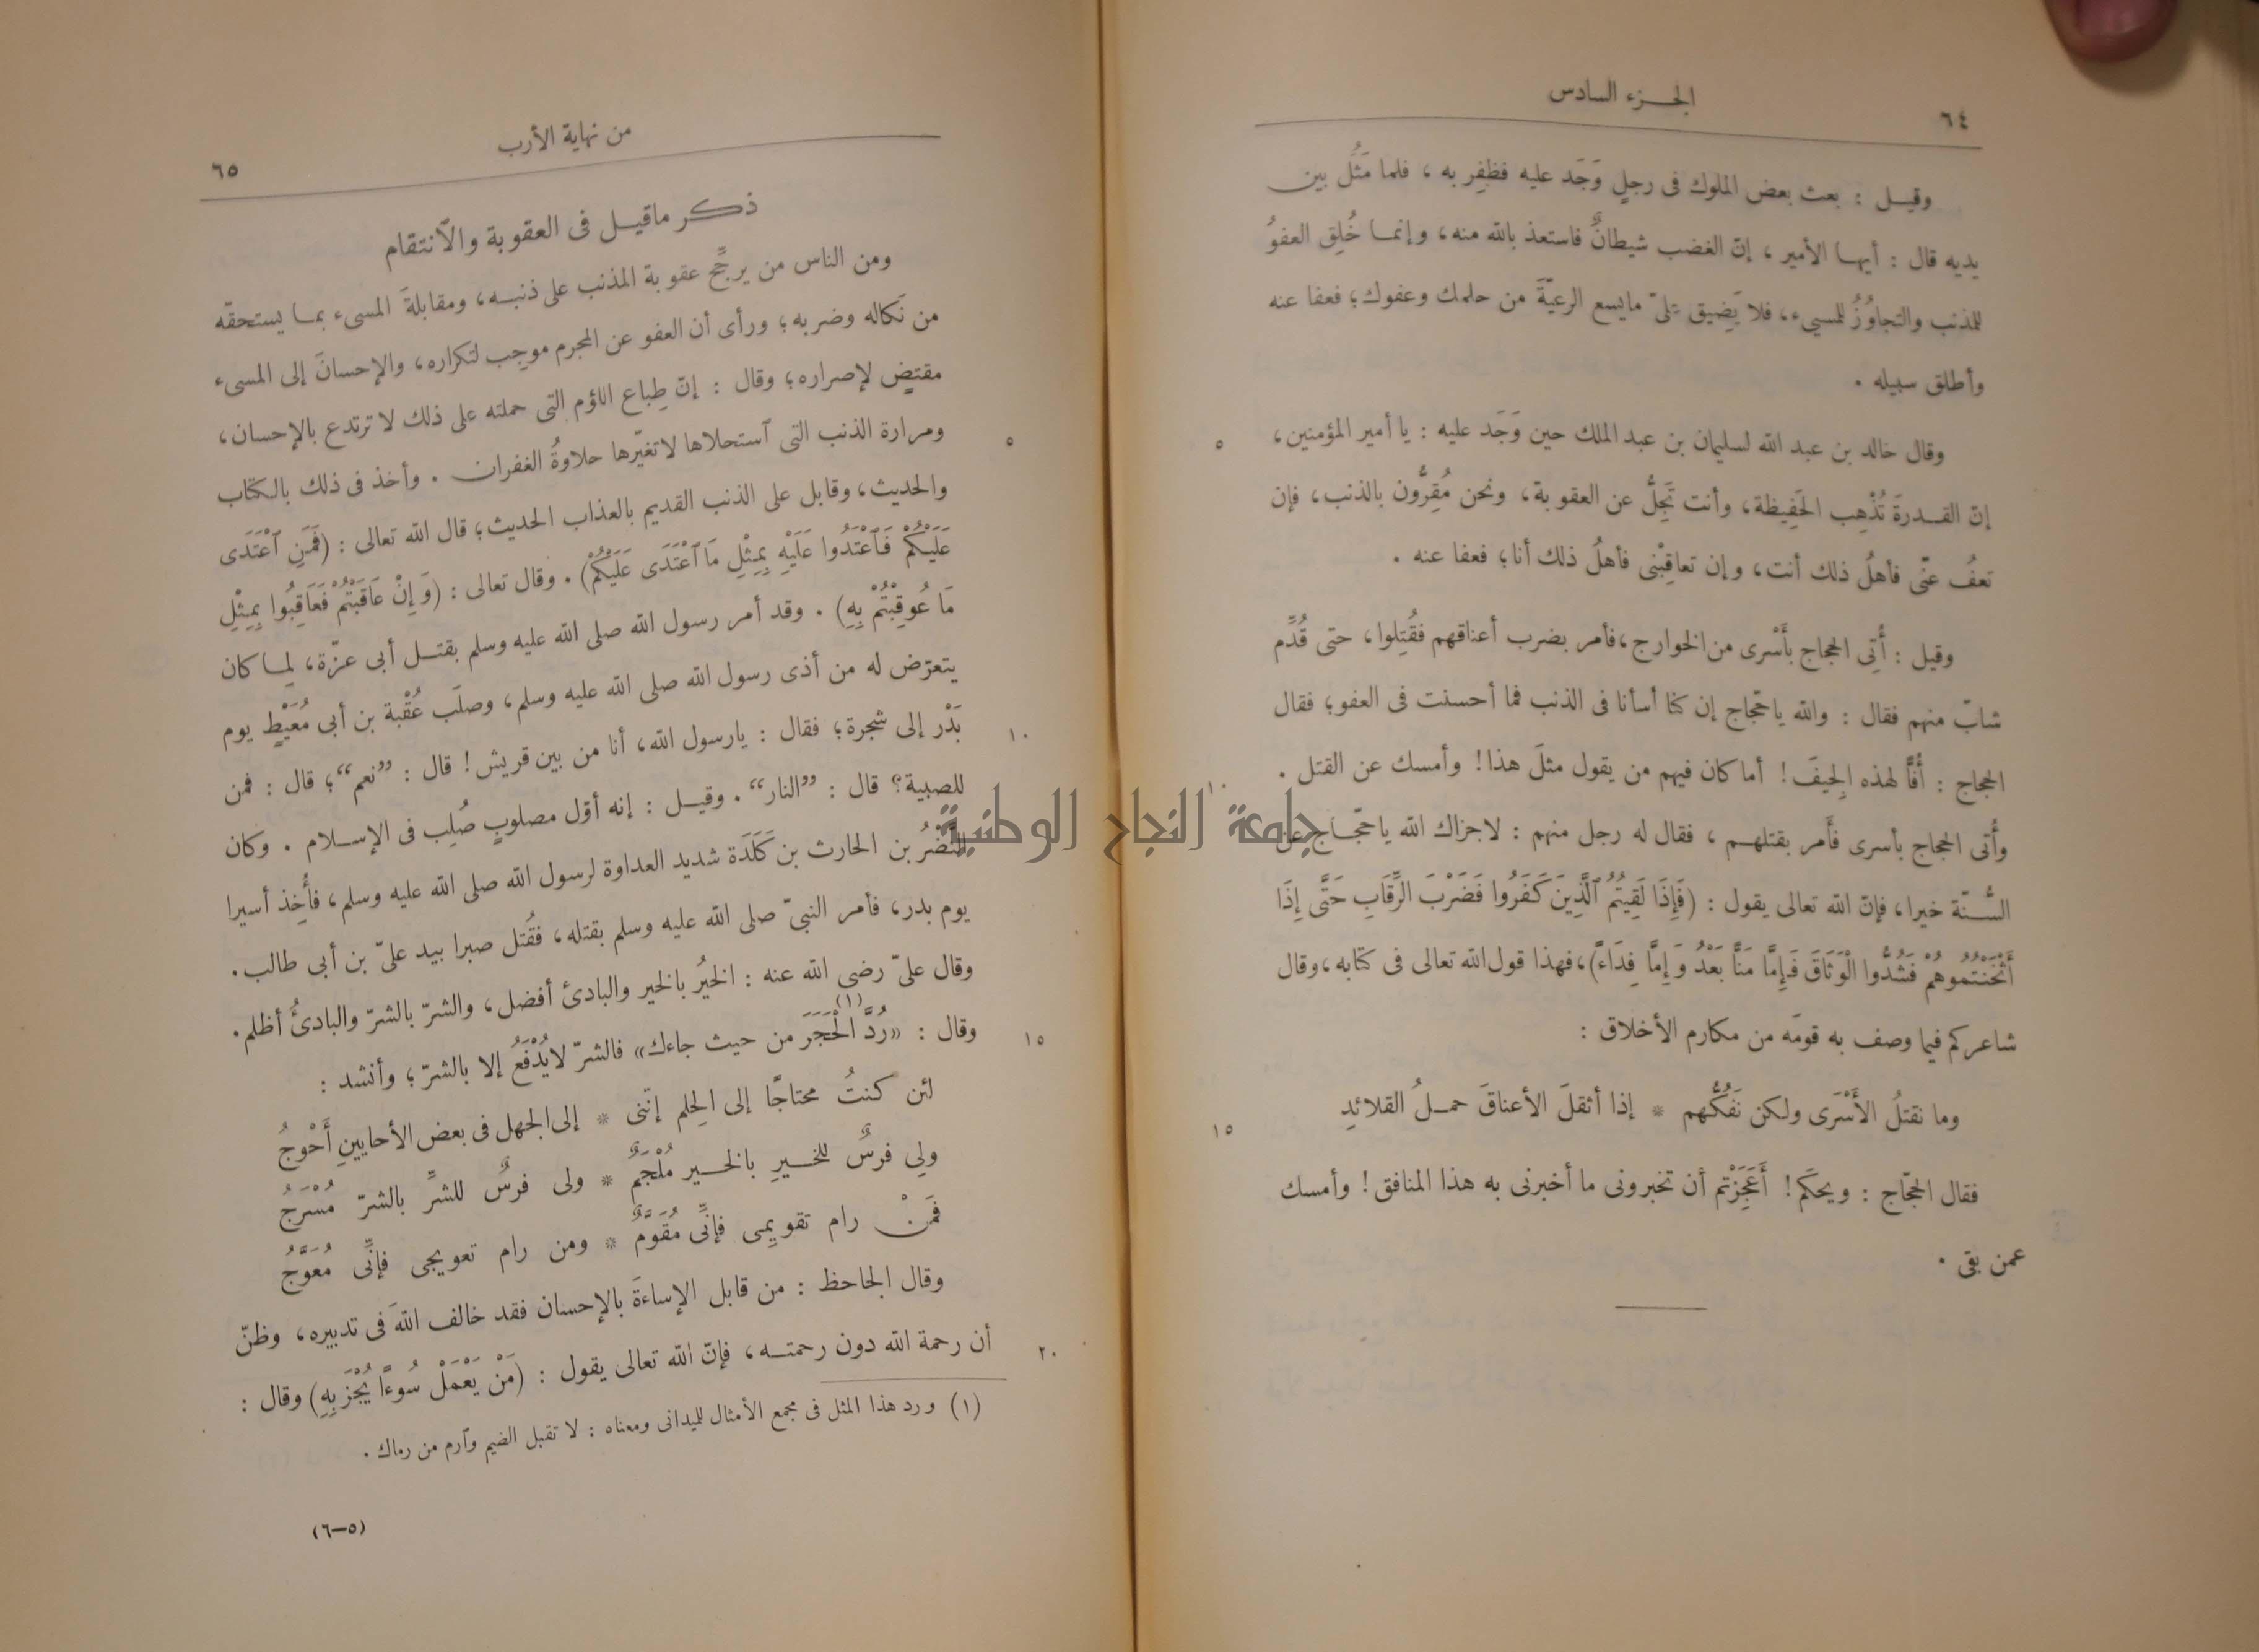 ٦٤
الجـزء السادس
وقيـل : بعث بعض الملوك فى رجلٍ وَجَد عليه فظفِر به ، فلما مَثُل بين
يديه قال : أيهـا الأمير ، إنّ الغضب شيطانٌ فاستعذ بالله منه، وإنمـا خُلِق العفوُ
للمذنب والتجاوُزُ للمسىء، فلا يَضِيق عليّ مايسع الرعيّةَ من حلمك وعفوك؛ فعفا عنه
وأطلق سبيله .
وقال خالد بن عبد الله لسليمان بن عبد الملك حين وَجَد عليه : يا أمير المؤمنين،
إنّ القـدرةَ تُذْهِب الحَفِيظة، وأنت تَجِلُّ عن العقوبة، ونحن مُقِرُّون بالذنب، فإن
تعفُ عنّى فأهلُ ذلك أنت، وإن تعاقِبْنى فأهلُ ذلك أنا؛ فعفا عنه .
وقيل : أُتِى الحجاج بأَسْرى من الخوارج،فأمر بضرب أعناقهم فقُتِلوا، حتى قُدِّم
شابّ منهم فقال : والله ياحجّاج إن كنا أسأنا فى الذنب فما أحسنت فى العفو؛ فقال
الحجاج : أُفًّا لهذه الجِيفَ! أما كان فيهم من يقول مثلَ هذا! وأمسك عن القتل .
وأُتى الحجاج بأسرى فأَمر بقتلهـم ، فقال له رجل منهم : لاجزاك الله ياحجّـاج عن
السُّـنّة خيرا، فإنّ الله تعالى يقول : (فَإِذَا لَقِيتُمُ ٱلَّذِينَ كَفَرُوا فَضَرْبَ الرِّقَابِ حَتَّى إِذَا
أَثْخَنْتُمُوهُمْ فَشُدُّوا الْوَثَاقَ فَإِمَّا مَنًّا بَعْدُ وَإِمَّا فِدَاءً)،فهذا قول الله تعالى فى كتابه،وقال
شاعركم فيما وصف به قومَه من مكارم الأخلاق :
وما نقتلُ الأَسْرَى ولكن نَفُكُّهم * إذا أثقلَ الأعناقَ حمـلُ القلائدِ
فقال الحجّاج : ويحكمَ! أَعَجَزْتم أن تخبرونى ما أخبرنى به هذا المنافق! وأمسك
عمن بقى .
٥
١٠
١٥
من نهاية الأرب
٦٥
ذكر ماقيـل فى العقوبة والآنتقام
ومن الناس من يرجِّح عقوبة المذنب على ذنبـه، ومقابلةَ المسىء بمـا يستحقّه
من نَكاله وضربه؛ ورأى أن العفو عن المجرم موجِب لتكراره، والإحسانَ إلى المسىء
مقتضٍ لإصراره؛ وقال : إنّ طِباع اللؤم التى حملته على ذلك لا ترتدع بالإحسان،
ومرارة الذنب التى آستحلاها لاتغيّرها حلاوةُ الغفران . وأخذ فى ذلك بالكتاب
والحديث، وقابل على الذنب القديم بالعذاب الحديث؛ قال الله تعالى : (فَمَنِ ٱعْتَدَى
عَلَيْكُمْ فَٱعْتَدُوا عَلَيْهِ بِمِثْلِ مَا ٱعْتَدَى عَلَيْكُمْ) . وقال تعالى : (وَإِنْ عَاقَبْتُمْ فَعَاقِبُوا بِمِثْلِ
مَا عُوقِبْتُمْ بِهِ) . وقد أمر رسول الله صلى الله عليه وسلم بقتـل أبى عزّة، لِمـا كان
يتعرّض له من أذى رسول الله صلى الله عليه وسلم، وصلَب عُقْبة بن أبى مُعَيْطٍ يوم
بَدْر إلى شجرة؛ فقال : يارسول الله، أنا من بين قريش! قال : ”نعم“؛ قال : فمن
للصبية؟ قال : ”النار“. وقيـل : إنه أوّل مصلوبٍ صُلِب فى الإسـلام . وكان
النَّضْرُ بن الحارث بن كَلَدَة شديد العداوة لرسول الله صلى الله عليه وسلم، فأُخِذ أسيرا
يوم بدر، فأمر النبىّ صلى الله عليه وسلم بقتله، فقُتل صبرا بيد علىّ بن أبى طالب.
وقال علىّ رضى الله عنه : الخيرُ بالخير والبادئ أفضل، والشرّ بالشرّ والبادئُ أظلم.
وقال : «رُدَّ الْحَجَرَ(١) من حيث جاءك» فالشرّ لايُدْفَعُ إلا بالشرّ؛ وأنشد :
لئن كنتُ محتاجًا إلى الحِلم إنّنى * إلى الجهل فى بعض الأحايينِ أَحْوجُ
ولِى فرسٌ للخـيرِ بالخـير مُلْجَمٌ * ولى فرسٌ للشرِّ بالشرّ مُسْرَجُ
فَمَنْ رام تقويمِى فإنِّى مُقَوَّمٌ * ومن رام تعويجى فإنِّى مُعَوَّجُ
وقال الجاحظ : من قابل الإساءةَ بالإحسان فقد خالف اللهَ فى تدبيره، وظنّ
أن رحمة الله دون رحمتـه، فإنّ الله تعالى يقول : (مَنْ يَعْمَلْ سُوءًا يُجْزَ بِهِ) وقال :
٥
١٠
١٥
٢٠
(١) ورد هذا المثل فى مجمع الأمثال لليدانى ومعناه : لا تقبل الضيم وآرم من رماك .
(٥—٦)
جامعة النجاح الوطنية